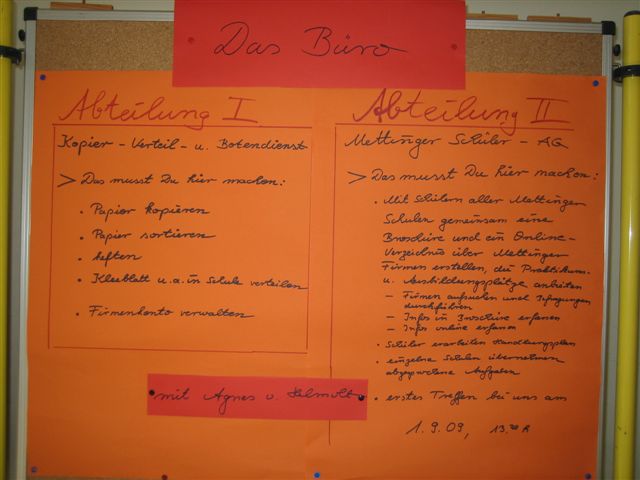 Das Büro
Abteilung I
Kopier - Verteil - u. Botendienst
> Das musst Du hier machen:
• Papier kopieren
• Papier sortieren
• heften
• Kleeblatt u.a. in Schule verteilen
• Firmenkonto verwalten
mit Agnes u. Helmolt
Abteilung II
Mettinger Schüler - AG
> Das musst Du hier machen:
• Mit Schülern aller Mettinger
Schulen gemeinsam eine
Broschüre und ein Online-
Verzeichnis über Mettinger
Firmen erstellen, die Praktikums-
u. Ausbildungsplätze anbieten
- Firmen aufsuchen und Befragungen
durchführen
- Infos in Broschüre erfassen
- Infos online erfassen
• Schüler erarbeiten Handlungsplan
• einzelne Schulen übernehmen
abgesprochene Aufgaben
• erstes Treffen bei uns am
1.9.09, 13.